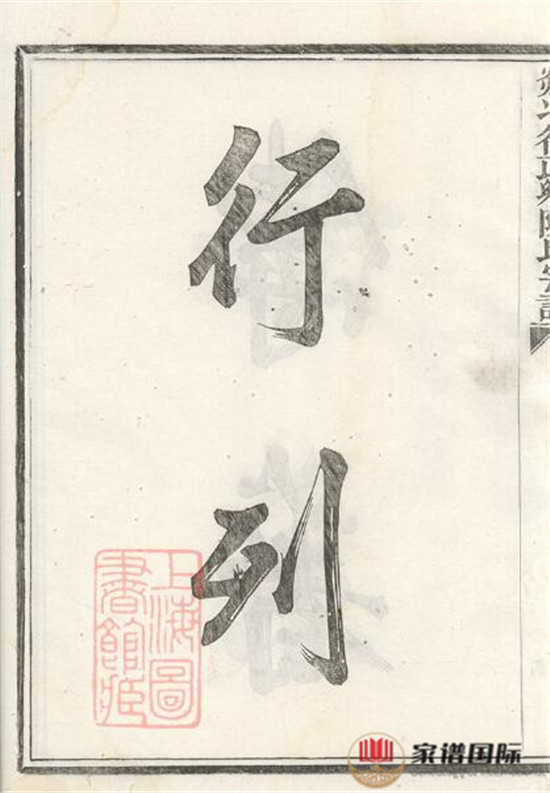 行列
上海圖書館藏
家谱国际